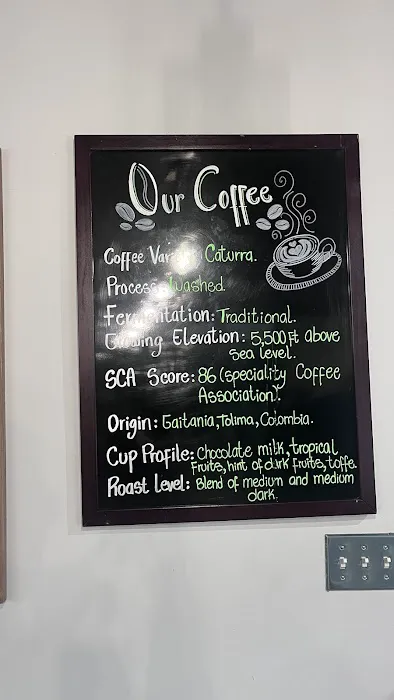 Our Coffee
Coffee Variety: Caturra.
Process: Washed.
Fermentation: Traditional.
Growing Elevation: 5,500 ft above
sea level.
SCA Score: 86 (speciality Coffee
Association).
Origin: Gaitania, Tolima, Colombia.
Cup Profile: Chocolate milk, tropical
fruits, hint of dark fruits, toffe.
Roast Level: Blend of medium and medium
dark.